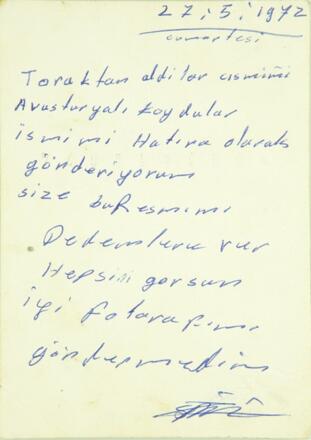 27.5.1972
cumartesi
Toraktan aldilar cismimi
Avusturyalı koydular
ismimi Hatıra olarak
gönderiyorum
size bu Resmimi
Dedemlere ver
Hepsi gorsun
iyi fotarafımı
göndermedim